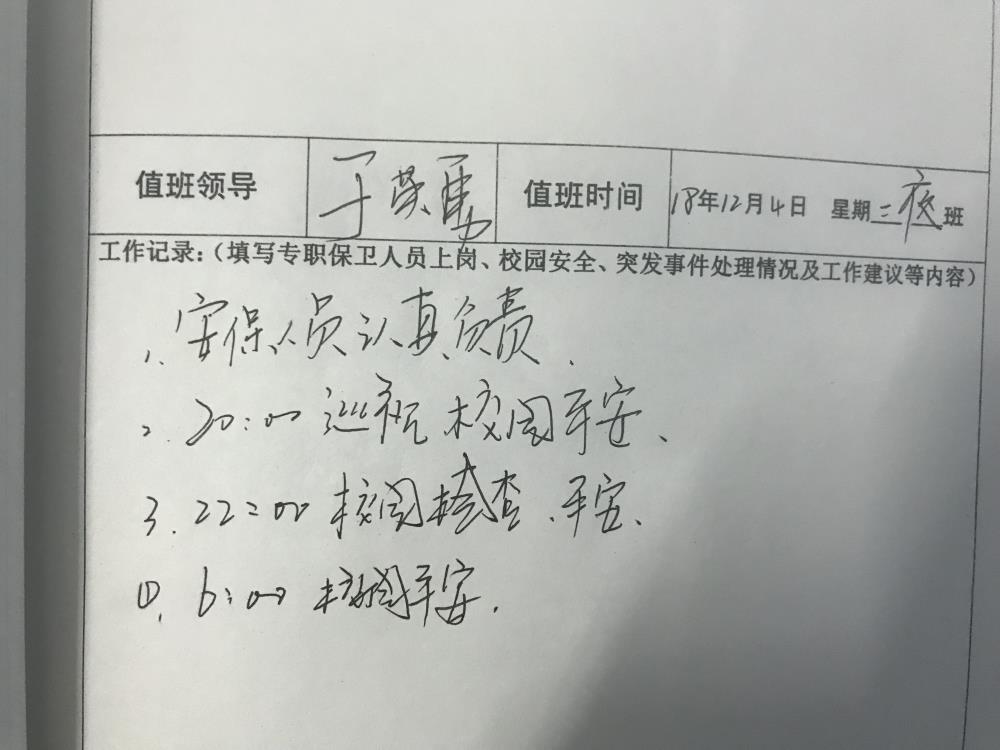 值班领导 于荣勇 值班时间 18年12月4日 星期二夜班
工作记录：（填写专职保卫人员上岗、校园安全、突发事件处理情况及工作建议等内容）
1. 安保人员认真负责.
2. 20:00 巡视校园平安、
3. 22:00 校园检查、平安、
4. 6:00 校园平安.